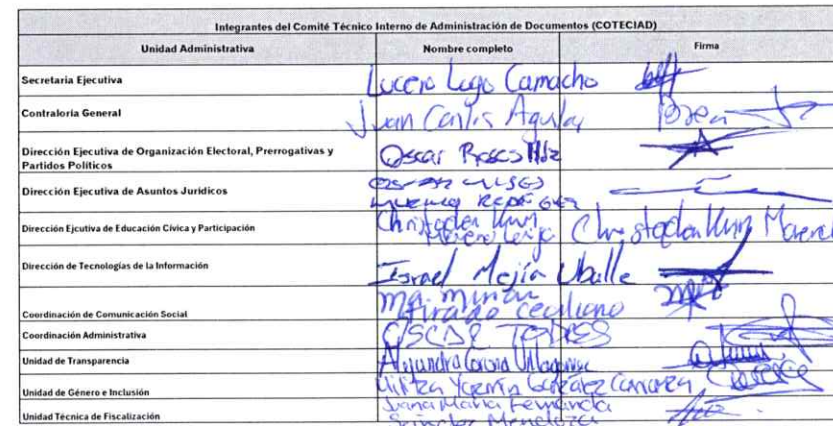 Integrantes del Comité Técnico Interno de Administración de Documentos (COTECIAD)
Unidad Administrativa Nombre completo Firma
Secretaria Ejecutiva Lucero Lugo Camacho
Contraloria General Juan Carlos Aguilar
Dirección Ejecutiva de Organización Electoral, Prerrogativas y
Partidos Políticos Oscar Rosas Hdz
Dirección Ejecutiva de Asuntos Jurídicos
Dirección Ejcutiva de Educación Cívica y Participación Christopher Moreno
Dirección de Tecnologías de la Información Israel Mejía Uballe
Coordinación de Comunicación Social Ma. Miriam
Tirado Ceciliano
Coordinación Administrativa OSCAR TORRES
Unidad de Transparencia Alejandra Corona Villagomez
Unidad de Género e Inclusión Mirtza Yazmín González
Juana María Fernanda
Unidad Técnica de Fiscalización Sánchez Mendoza